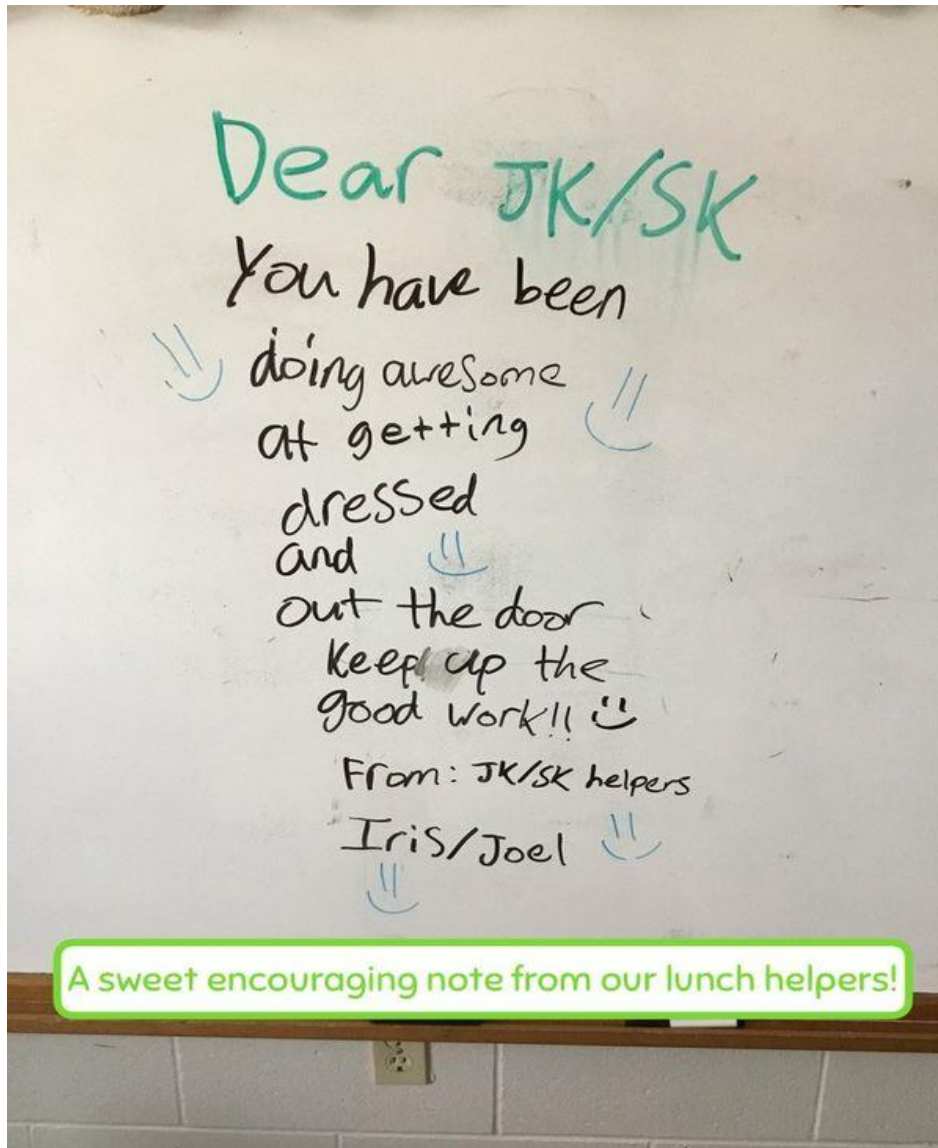 Dear JK/SK
You have been
doing awesome
at getting
dressed
and
out the door
Keep up the
good work!!
From: JK/SK helpers
Iris/Joel
A sweet encouraging note from our lunch helpers!